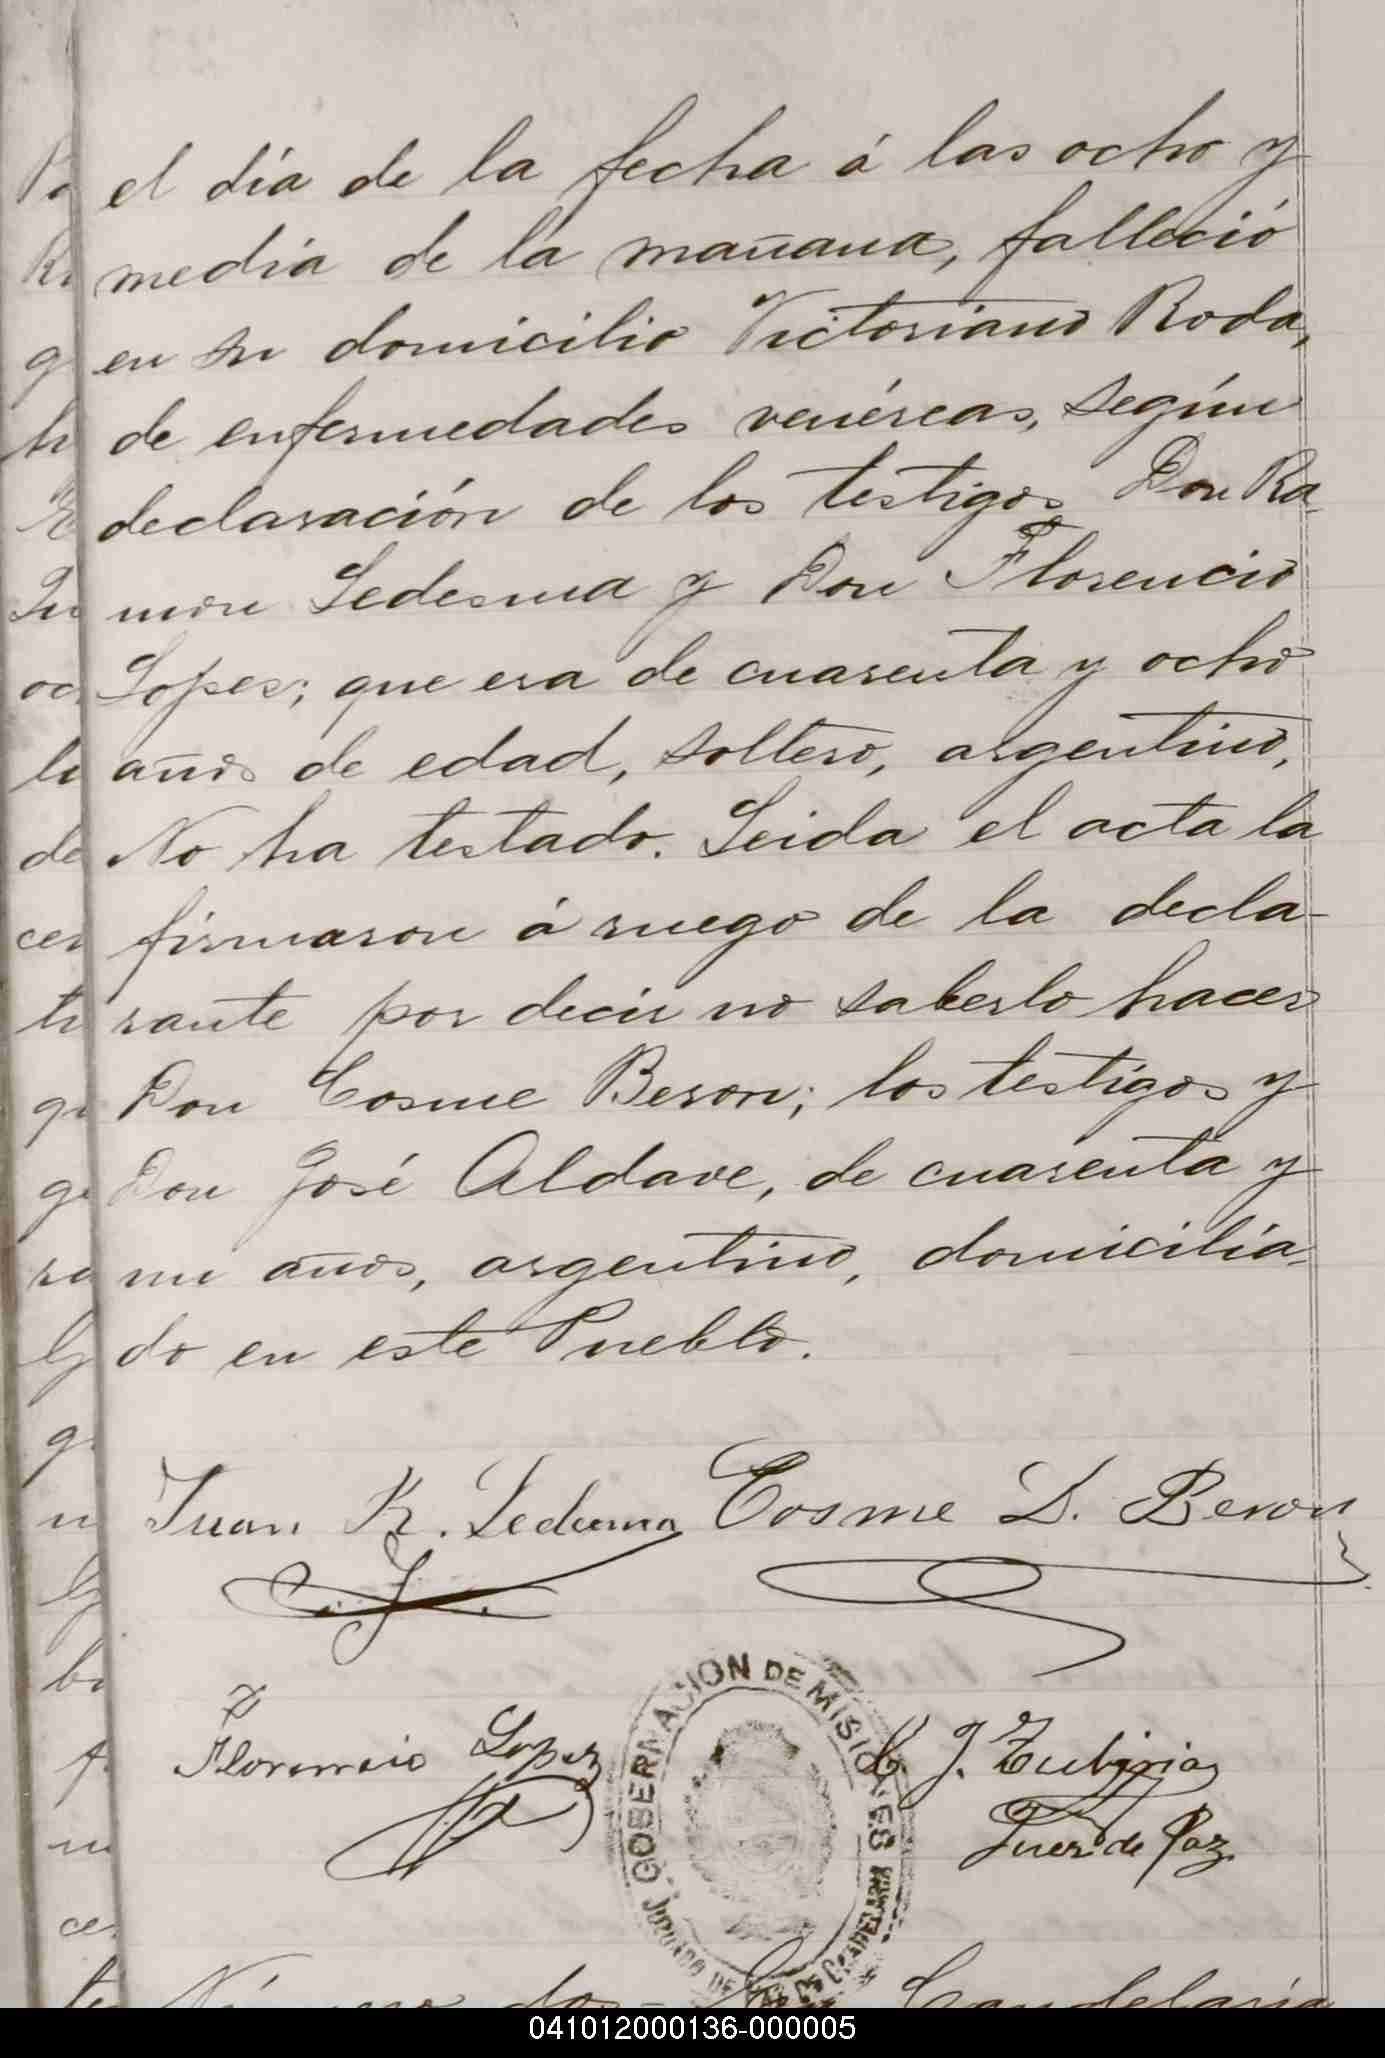 el día de la fecha á las ocho y
media de la mañana, falleció
en su domicilio Victoriano Roda,
de enfermedades venéreas, según
declaración de los testigos Don Ra-
mon Ledesma y Don Florencio
Lopes; que era de cuarenta y ocho
años de edad, soltero, argentino,
No ha testado. Leida el acta la
firmaron á ruego de la decla-
rante por decir no saberlo hacer
Don Cosme Beron; los testigos y
Don José Aldave, de cuarenta y
un años, argentino, domicilia-
do en este Pueblo.
Juan R. Ledesma Cosme D. Beron
Florencio Lopez
Juez de Paz
GOBERNACION DE MISIONES
JUZGADO DE
Número dos - Candelaria
041012000136-000005